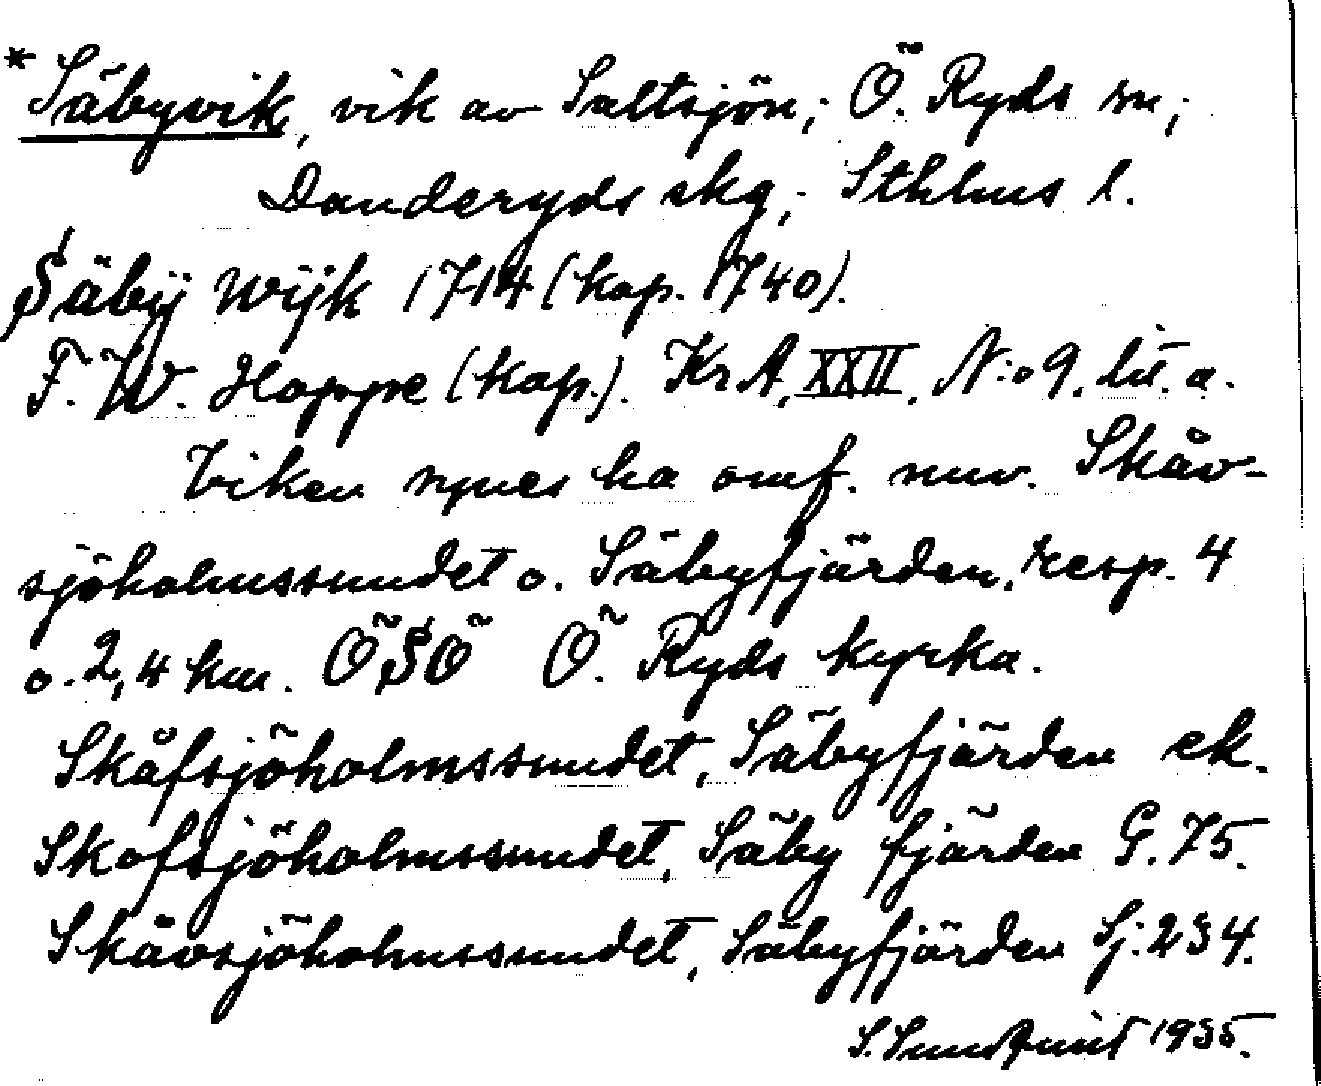 * Säbyvik, vik av Saltsjön; Ö. Ryds sn;
Danderyds skg; Sthlms l.
Säbÿ Wijk 1714 (kop. 1740).
F. W. Hoppe (kop.). KrA, XXII, N:o 9. lit. a.
Viken synes ha omf. nuv. Skåv-
sjöholmssundet o. Säbyfjärden, resp. 4
o. 2,4 km. ÖSÖ Ö. Ryds kyrka.
Skåfsjöholmssundet, Säbyfjärden ek.
Skofsjöholmssundet, Säby fjärden G. 75.
Skåvsjöholmssundet, Säbyfjärden Sj: 234.
S. Sundqvist 1935.